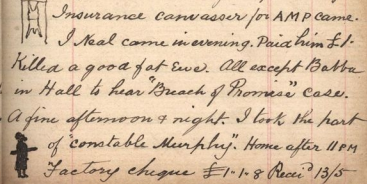 Insurance canvasser for AMP came.
I Neal came in evening. Paid him £1.
Killed a good fat Ewe. All except Babba
in Hall to hear "Breach of Promise" case.
A fine afternoon & night. I took the part
of "constable Murphy". Home after 11 PM
Factory cheque £1-1-8 Recei'd 13/5